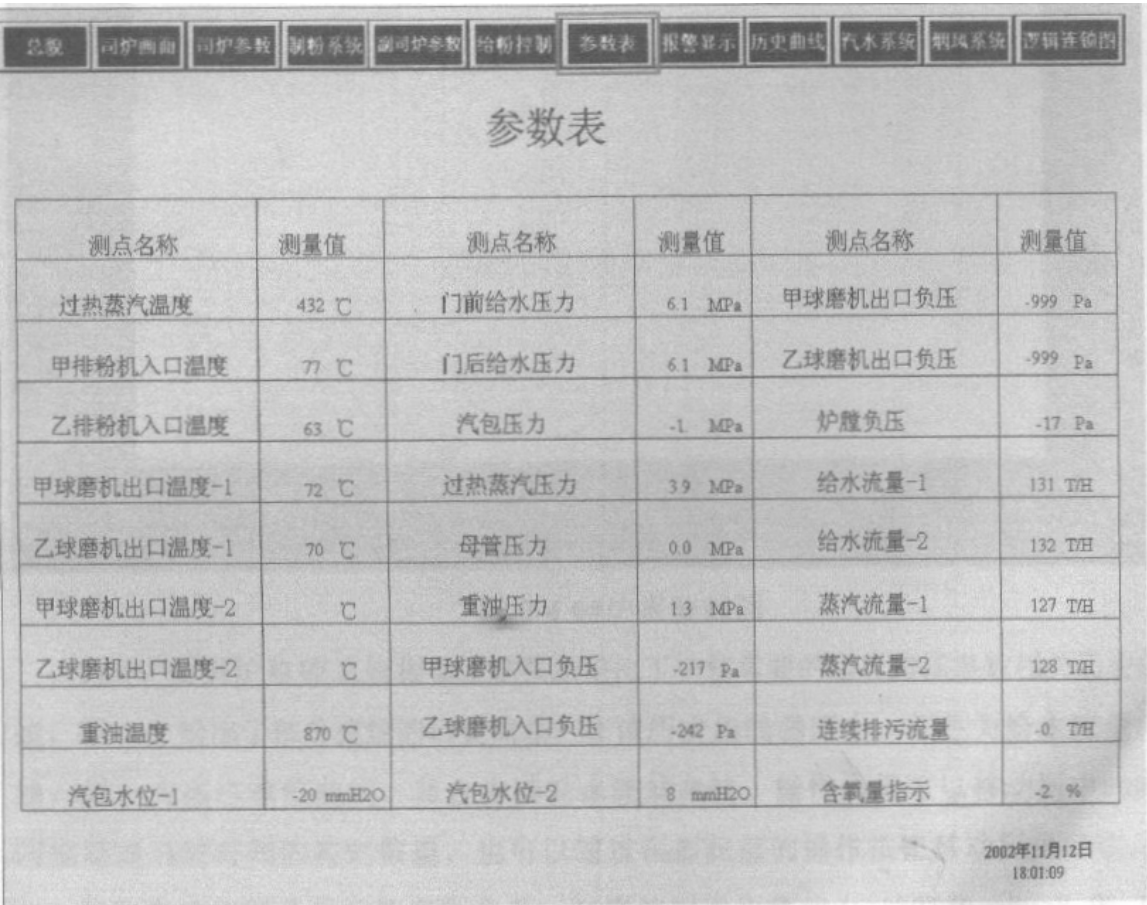 总貌 司炉画面 司炉参数 制粉系统 副司炉参数 给粉控制 参数表 报警显示 历史曲线 汽水系统 烟风系统 逻辑连锁图
参数表
测点名称 测量值 测点名称 测量值 测点名称 测量值
过热蒸汽温度 432 ℃ 门前给水压力 6.1 MPa 甲球磨机出口负压 -999 Pa
甲排粉机入口温度 77 ℃ 门后给水压力 6.1 MPa 乙球磨机出口负压 -999 Pa
乙排粉机入口温度 63. ℃ 汽包压力 -1. MPa 炉膛负压 -17 Pa
甲球磨机出口温度-1 72 ℃ 过热蒸汽压力 3.9 MPa 给水流量-1 131 T/H
乙球磨机出口温度-1 70 ℃ 母管压力 0.0 MPa 给水流量-2 132 T/H
甲球磨机出口温度-2 ℃ 重油压力 1.3 MPa 蒸汽流量-1 127 T/H
乙球磨机出口温度-2 ℃ 甲球磨机入口负压 -217 Pa 蒸汽流量-2 128 T/H
重油温度 870 ℃ 乙球磨机入口负压 -242 Pa 连续排污流量 -0. T/H
汽包水位-1 -20 mmH2O 汽包水位-2 8 mmH2O 含氧量指示 -2. %
2002年11月12日
18:01:09